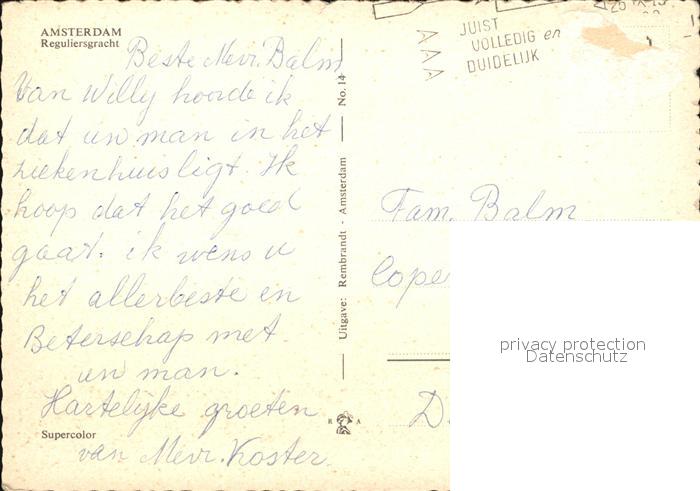 AMSTERDAM
Reguliersgracht
Beste Mevr. Balm
Van Willy hoorde ik
dat uw man in het
ziekenhuis ligt. Ik
hoop dat het goed
gaat. ik wens u
het allerbeste en
Beterschap met
uw man.
Hartelijke groeten
van Mevr. Koster.
Supercolor
No. 14
Uitgave: Rembrandt - Amsterdam
R A
AAA
JUIST
VOLLEDIG en
DUIDELIJK
Fam. Balm
Cope
D.
privacy protection
Datenschutz